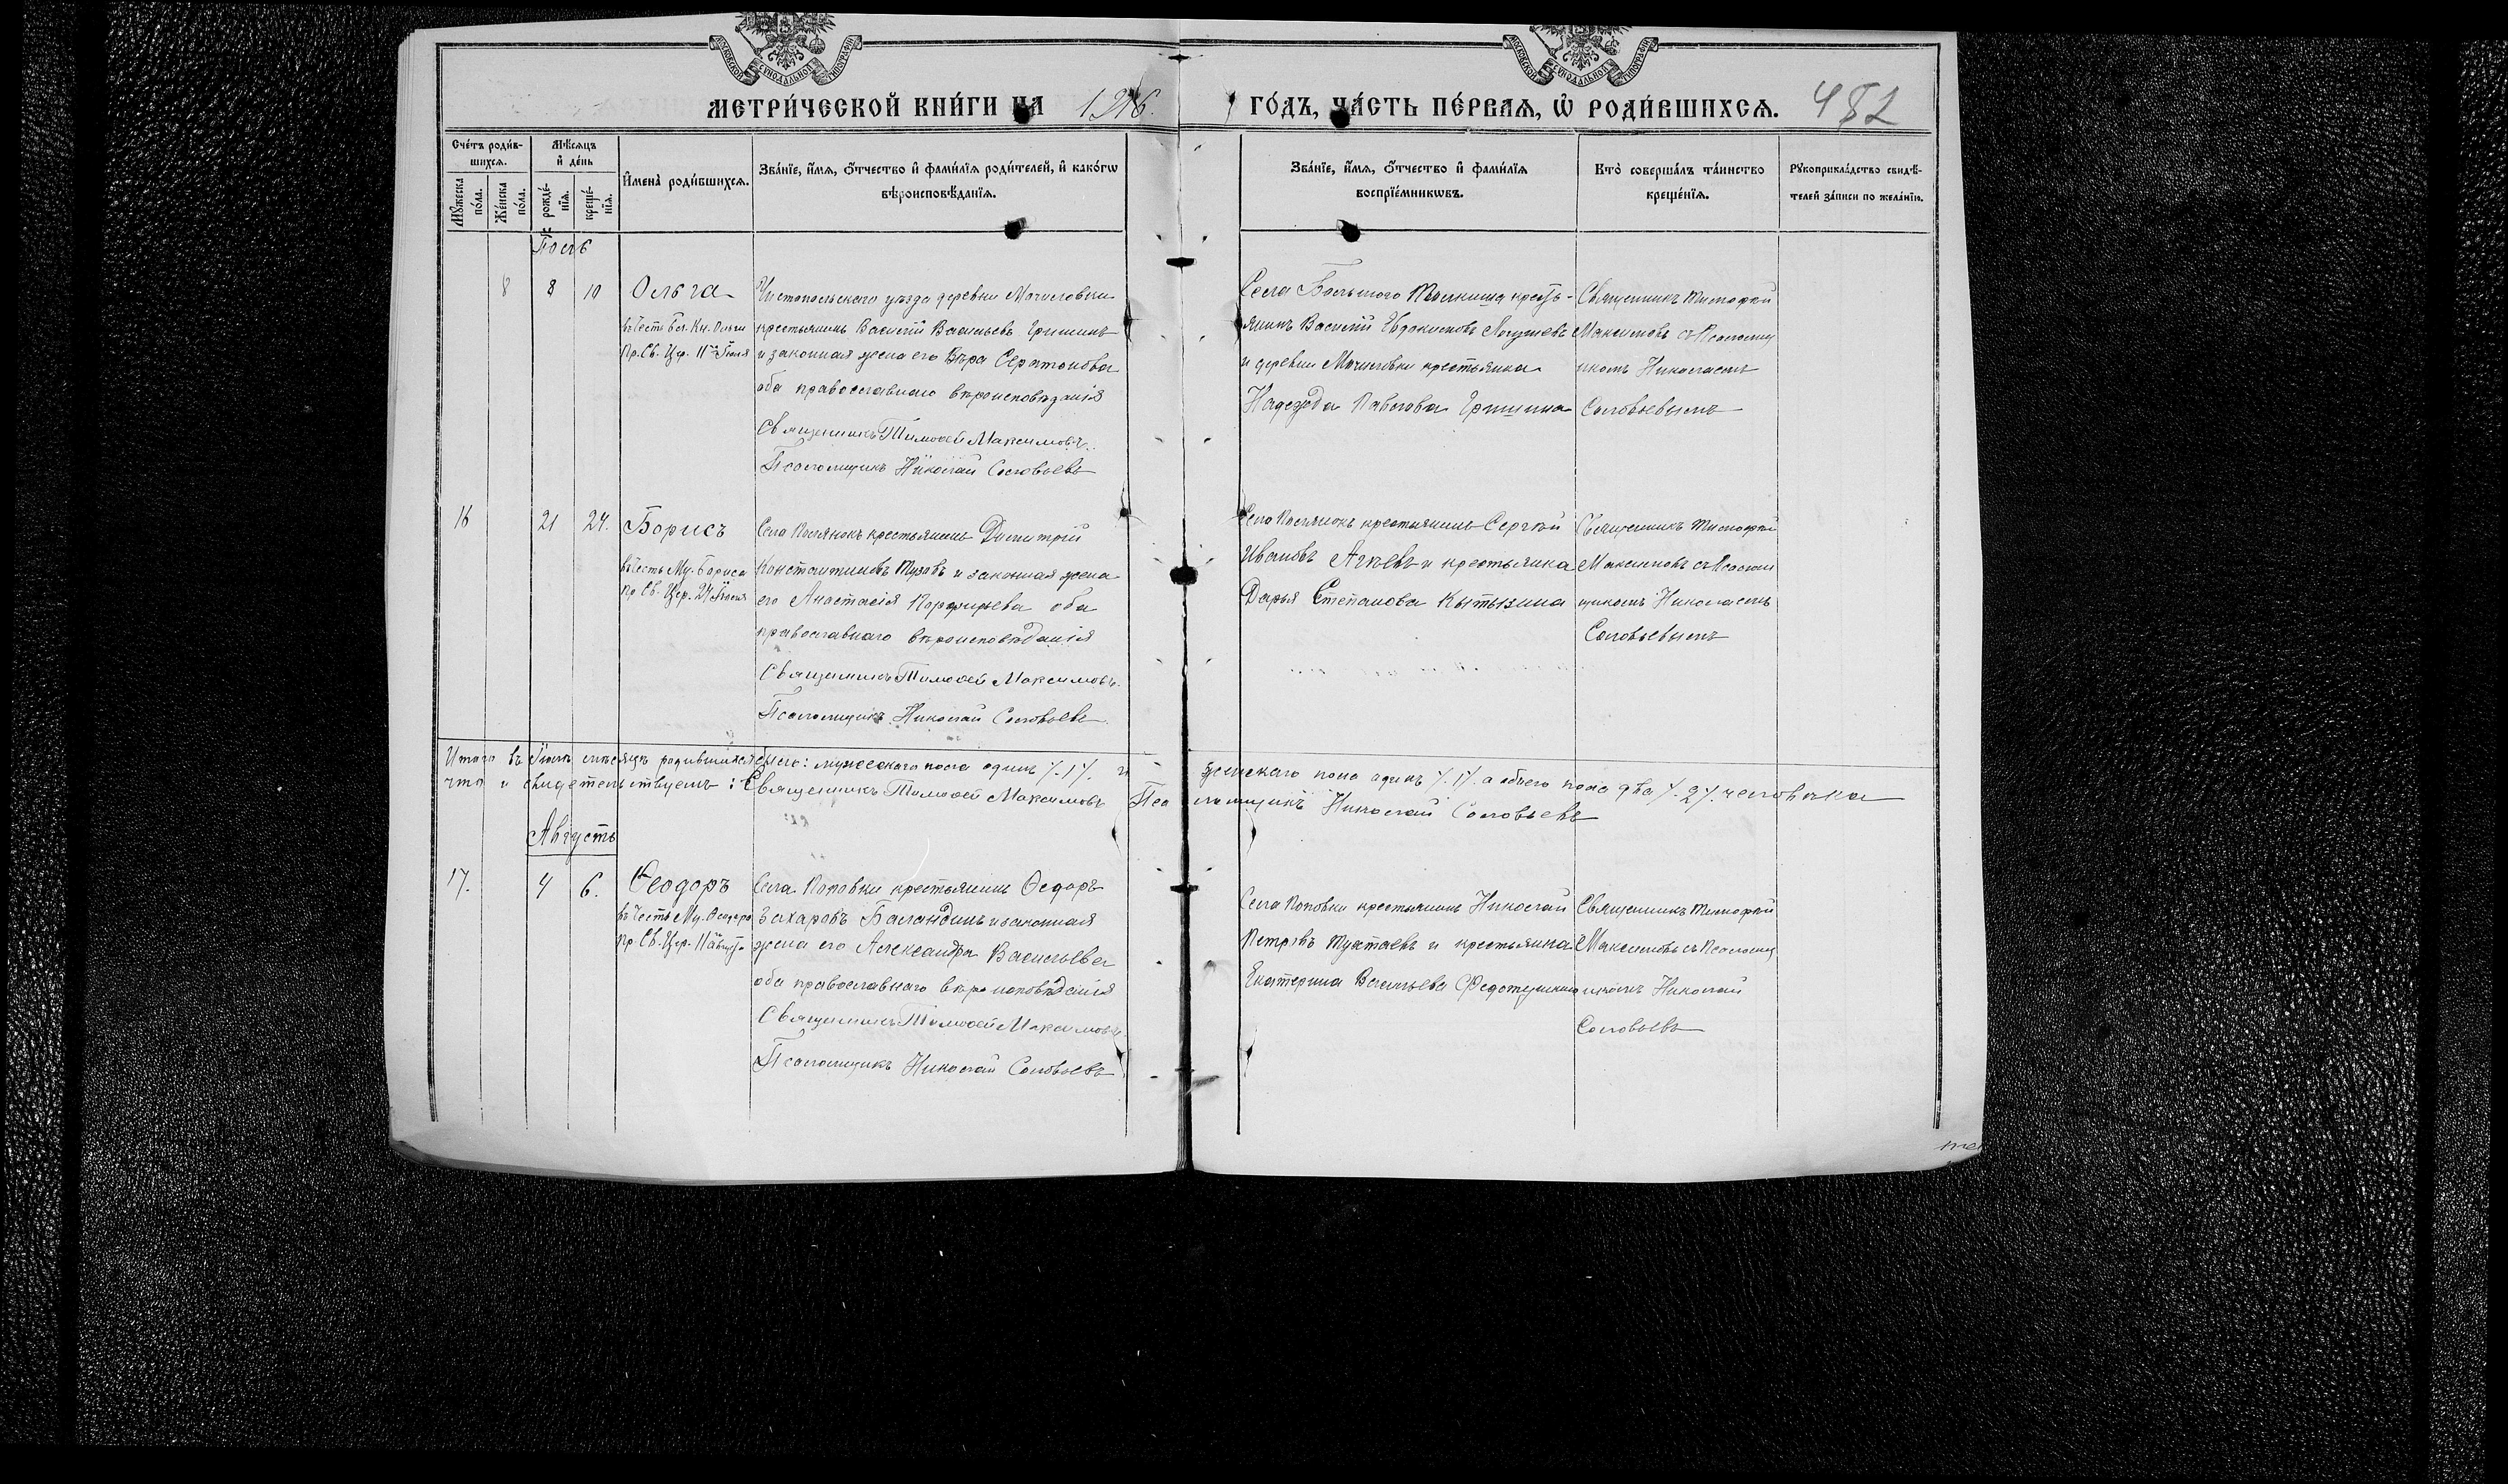 МОСКОВСКОЙ СѴНОДАЛЬНОЙ ТИПОГРАФІИ
МОСКОВСКОЙ СѴНОДАЛЬНОЙ ТИПОГРАФІИ
МЕТРИ́ЧЕСКОЙ КНИ́ГИ НА 1916. ГО́ДЪ, ЧА́СТЬ ПЕ́РВАЯ, Ѡ РОДИ́ВШИХСЯ. 482
Сче́тъ роди́в-
шихся.
Мꙋ́жеска по́ла.
Же́нска по́ла.
Мѣ́сяцъ
и҆ де́нь
рожде́-
нїя.
креще́-
нїя.
И҆мена̀ роди́вшихся.
Зва́нїе, и҆́мя, ѻ҆́тчество и҆ фами́лїя роди́телей, и҆ како́гѡ
вѣроисповѣ́данїя.
Зва́нїе, и҆́мя, ѻ҆́тчество и҆ фами́лїя
воспрїе́мникѡвъ.
Кто̀ соверша́лъ та́инство
креще́нїя.
Рꙋкоприкла́дство свидѣ́-
телей за́писи по жела́нїю.
8 8 10 Ольга
въ честь Бл. Кн. Ольги
пр. Св. Цер. 11го Іюля
Чистопольскаго уѣзда деревни
крестьянинъ Василій Васильевъ Гришинъ
и законная жена его Вѣра
оба православнаго вѣроисповѣданія
Священникъ Тимоѳей Максимовъ.
Псаломщикъ Николай Соловьевъ
Села Большого Толкиша кресть-
янинъ Василій Евдокимовъ
и деревни крестьянка
Надежда Павлова Гришина
Священникъ Тимофей
Максимовъ съ Псаломщ
икомъ Николаемъ
Соловьевымъ
16 21 24. Борисъ
въ честь Му. Бориса
пр Св. Цер. 24 Іюля
Села крестьянинъ Димитрій
Константиновъ Тузовъ и законная жена
его Анастасія Порфирьева оба
православнаго вѣроисповѣданія
Священникъ Тимоѳей Максимовъ.
Псаломщикъ Николай Соловьевъ.
Села крестьянинъ Сергѣй
Ивановъ Агѣевъ и крестьянка
Дарья Степанова Кытызина
Священникъ Тимофей
Максимовъ съ Псалом
щикомъ Николаемъ
Соловьевымъ
Итого въ Іюлѣ мѣсяцѣ родившихся было: мужескаго пола одинъ /.1/. и женскаго пола одинъ /.1/. а обоего пола два /.2/. человѣка
что и свидетельствуемъ: Священникъ Тимоѳей Максимовъ Псаломщикъ Николай Соловьевъ
Августъ
17. 4 6. Ѳеодоръ
въ честь Му. Ѳеодора
пр Св. Цер. 11 августа
Села Поповки крестьянинъ Ѳедоръ
Захаровъ Баландинъ и законная
жена его Александра Васильева
оба православнаго вѣроисповѣданія
Священникъ Тимоѳей Максимовъ
Псаломщикъ Николай Соловьевъ
Села Поповки крестьянинъ Николай
Петровъ Туктаевъ и крестьянка
Екатерина Васильева Федотушкина
Священникъ Тимофей
Максимовъ съ Псаломщ
икомъ Николай
Соловьевъ